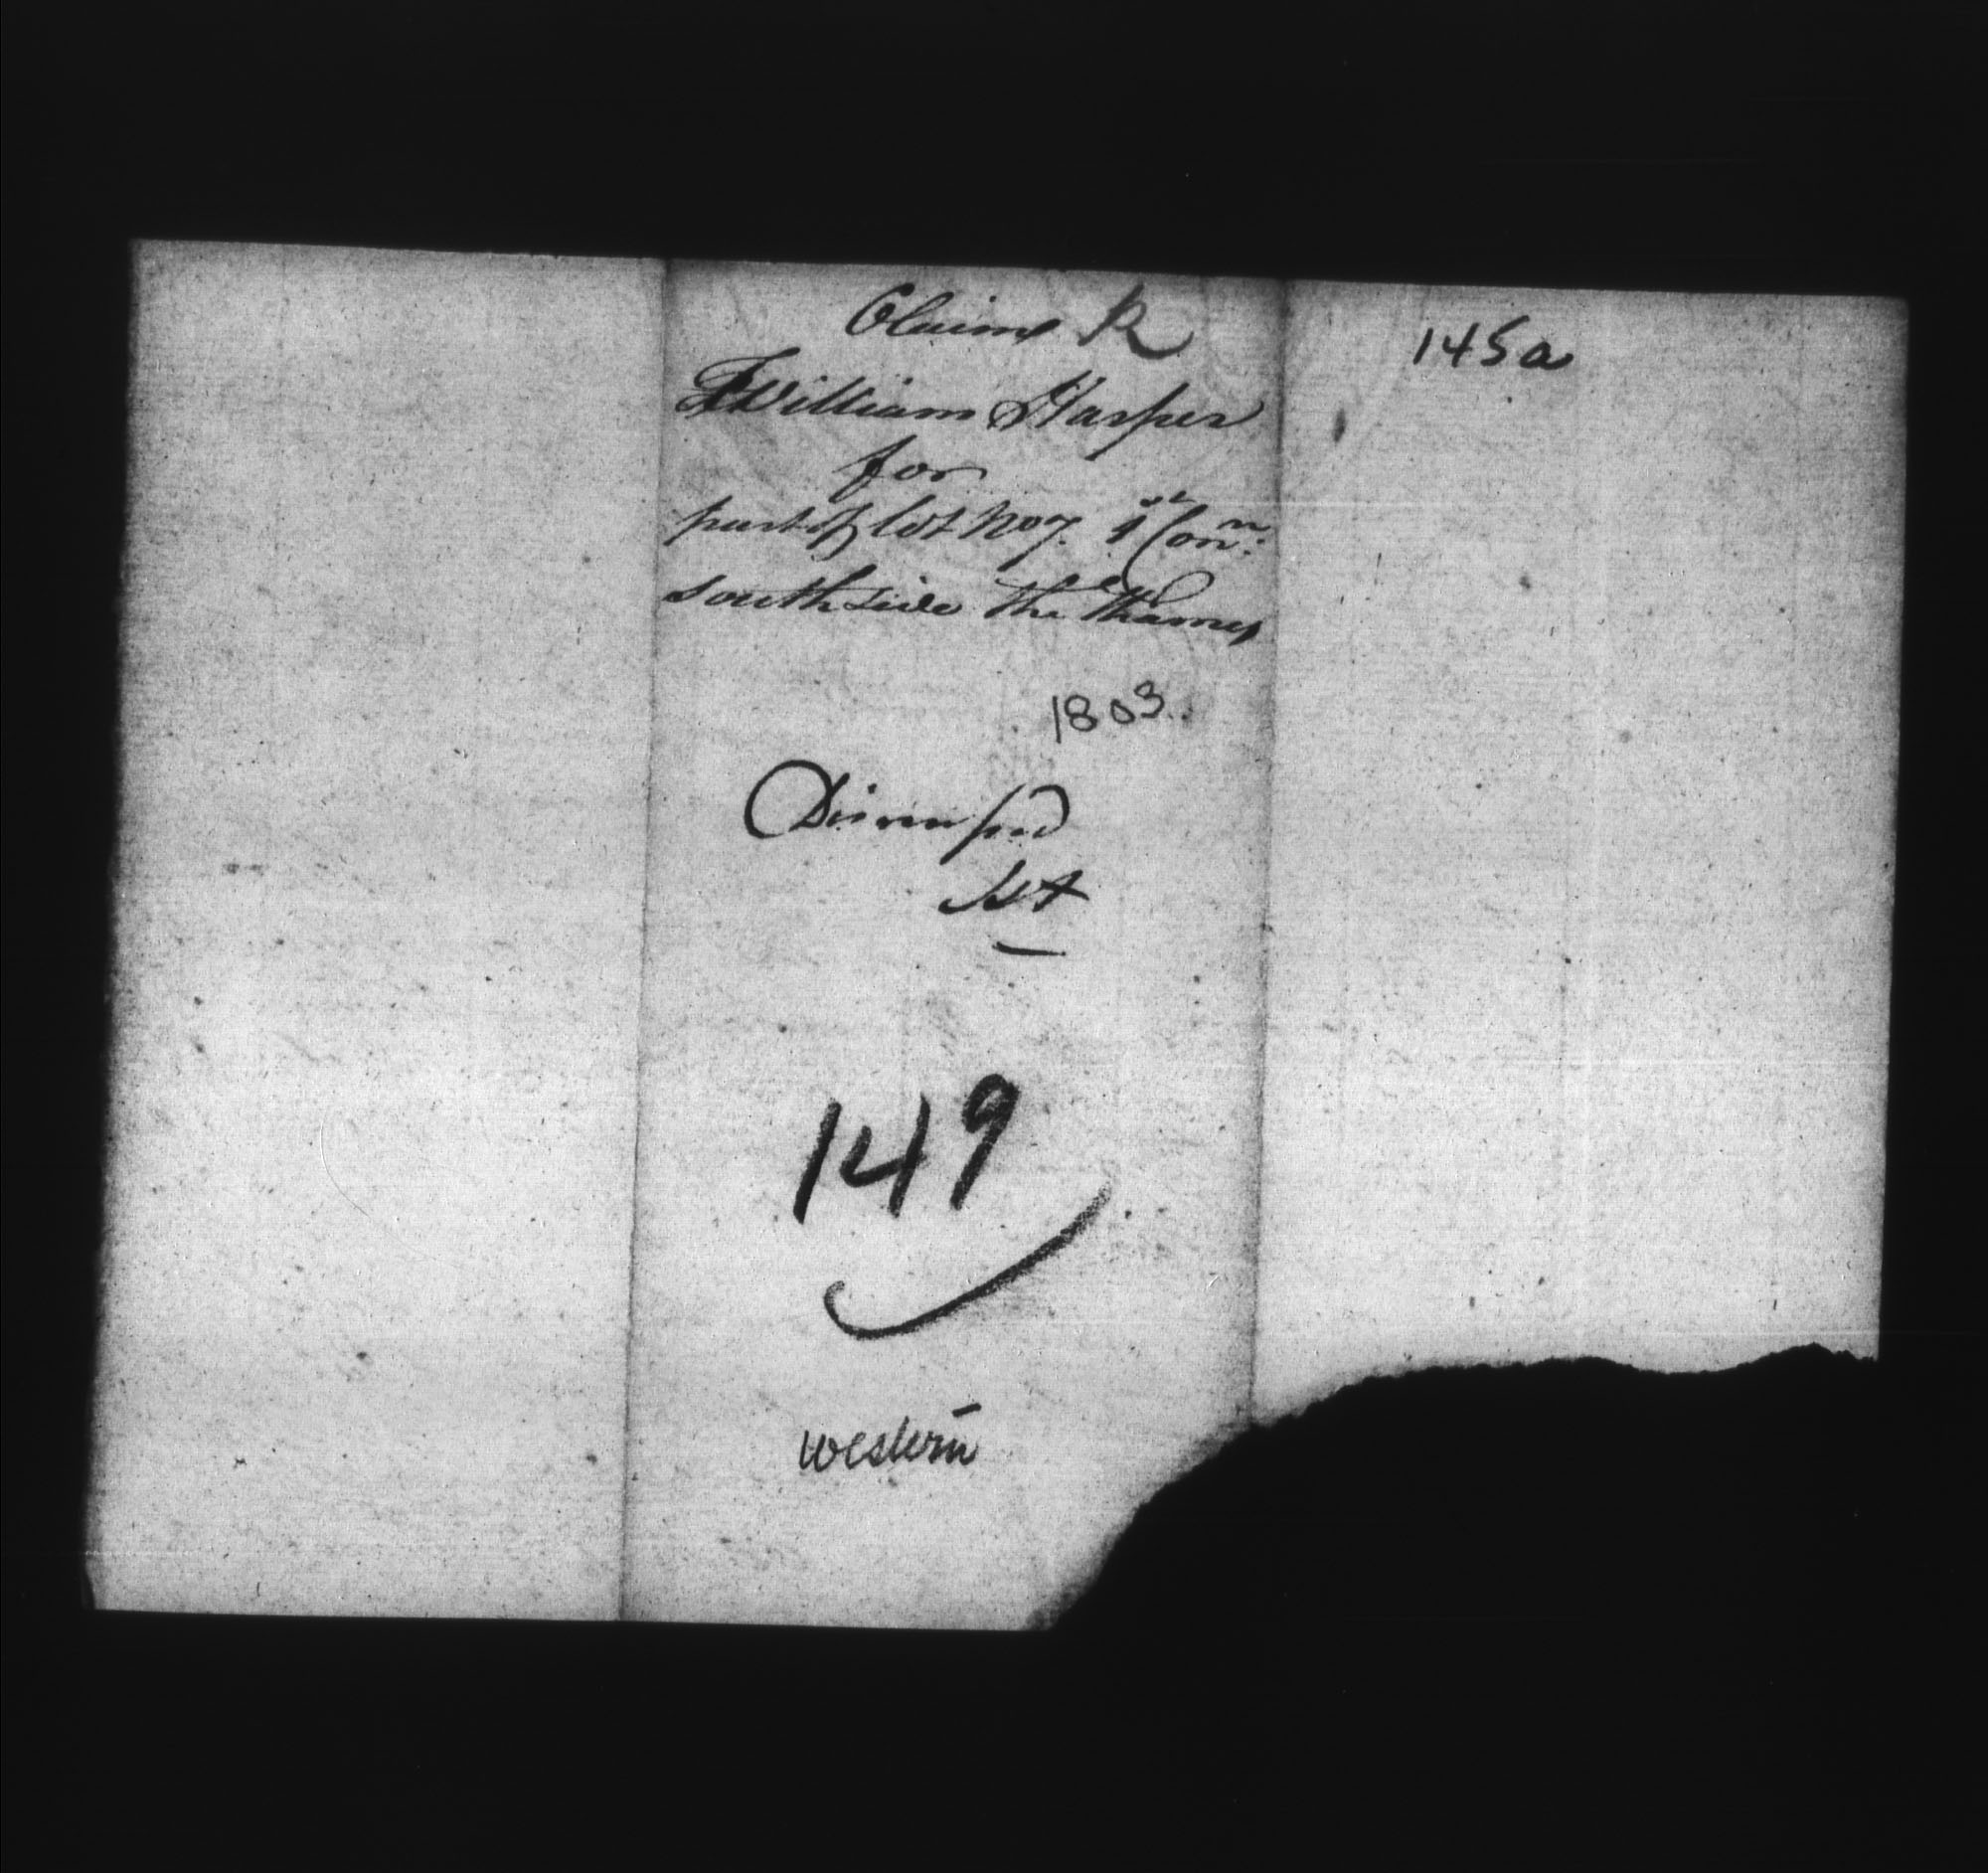 Claim R
William Harper
for
part of lot No 7. 1st Conn:
south side the Thames
1803.
Dismissed
149
western
145a